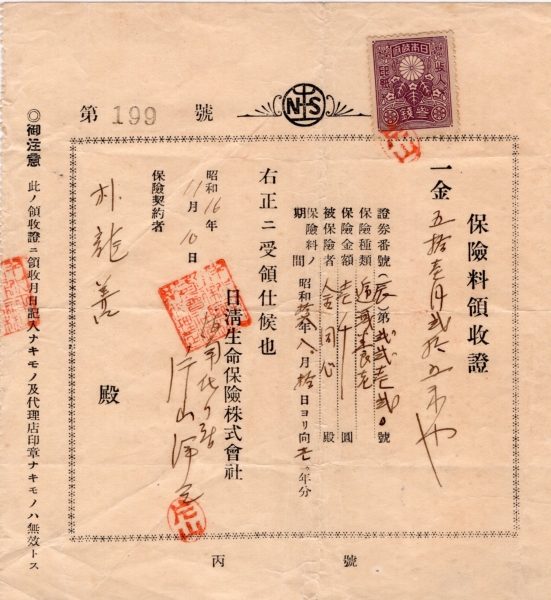 第 199 號
NS
日本政府
收入印紙
參錢
保險料領收證
一金五拾壱円貳拾五
證券番號(辰)第貳貳壱貳〇號
保險種類
保險金額 壱千圓
被保險者 殿
保險料ノ期間 昭和 年八月拾日ヨリ向壱ヶ年分
右正ニ受領仕候也
昭和16年11月10日
日清生命保險株式會社
片山
保險契約者
朴龍善 殿
◎御注意 此ノ領收證ニ領收月日記入ナキモノ及代理店印章ナキモノハ無效トス
丙 號
片山